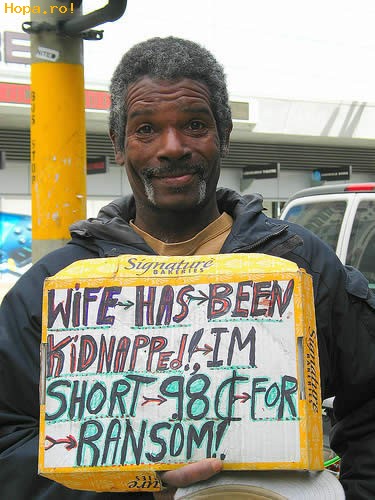 Hopa.ro!
BUS STOP
Signature
BAKERIES
WiFE→HAS→BEEN
KiDNAPPEd!!→IM
SHORT→98¢→FOR
→RANSOM!
Signature